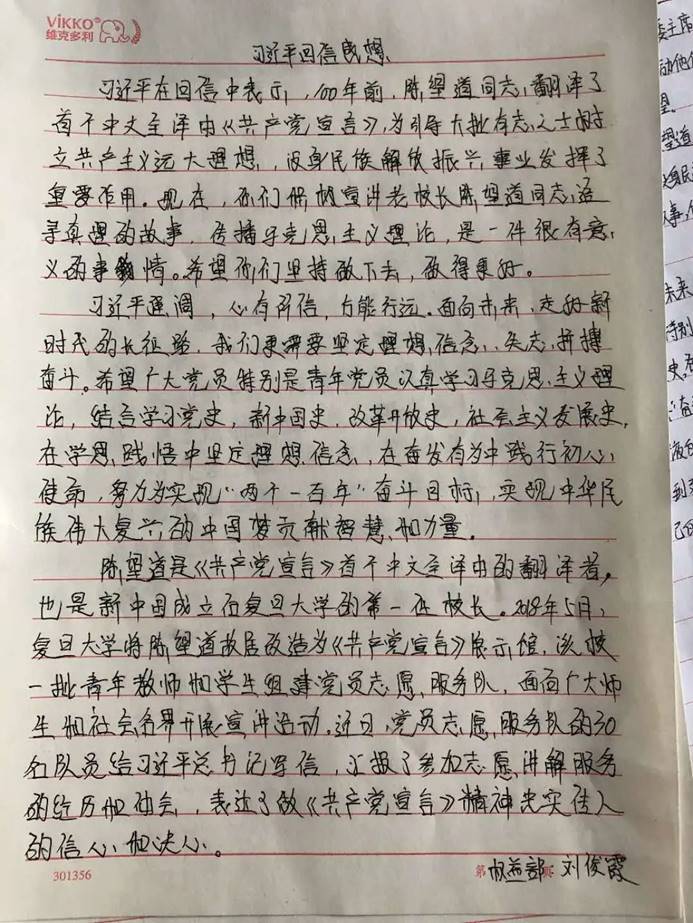 VIKKO
维克多利
习近平回信感想
习近平在回信中表示,100年前,陈望道同志翻译了
首个中文全译本《共产党宣言》,为引导大批有志之士树
立共产主义远大理想,投身民族解放振兴事业发挥了
重要作用。现在,你们积极宣讲老校长陈望道同志追
寻真理的故事,传播马克思主义理论,是一件很有意
义的事情。希望你们坚持做下去,做得更好。
习近平强调,心有所信,方能行远。面向未来,走好新
时代的长征路,我们更需要坚定理想信念、矢志拼搏
奋斗。希望广大党员特别是青年党员认真学习马克思主义理
论,结合学习党史,新中国史,改革开放史,社会主义发展史,
在学思践悟中坚定理想信念,在奋发有为中践行初心
使命,努力为实现“两个一百年”奋斗目标,实现中华民
族伟大复兴的中国梦贡献智慧和力量。
陈望道是《共产党宣言》首个中文全译本的翻译者,
也是新中国成立后复旦大学的第一任校长。2018年5月,
复旦大学将陈望道故居改造为《共产党宣言》展示馆,该校
一批青年教师和学生组建党员志愿服务队,面向广大师
生和社会各界开展宣讲活动。近日,党员志愿服务队的30
名队员给习近平总书记写信,汇报了参加志愿讲解服务
的经历和体会,表达了做《共产党宣言》精神忠实传人
的信心和决心。
301356
第 页
权益部 刘俊霞
委主席
动他们
望
望道
未来
特别
史
奋
到